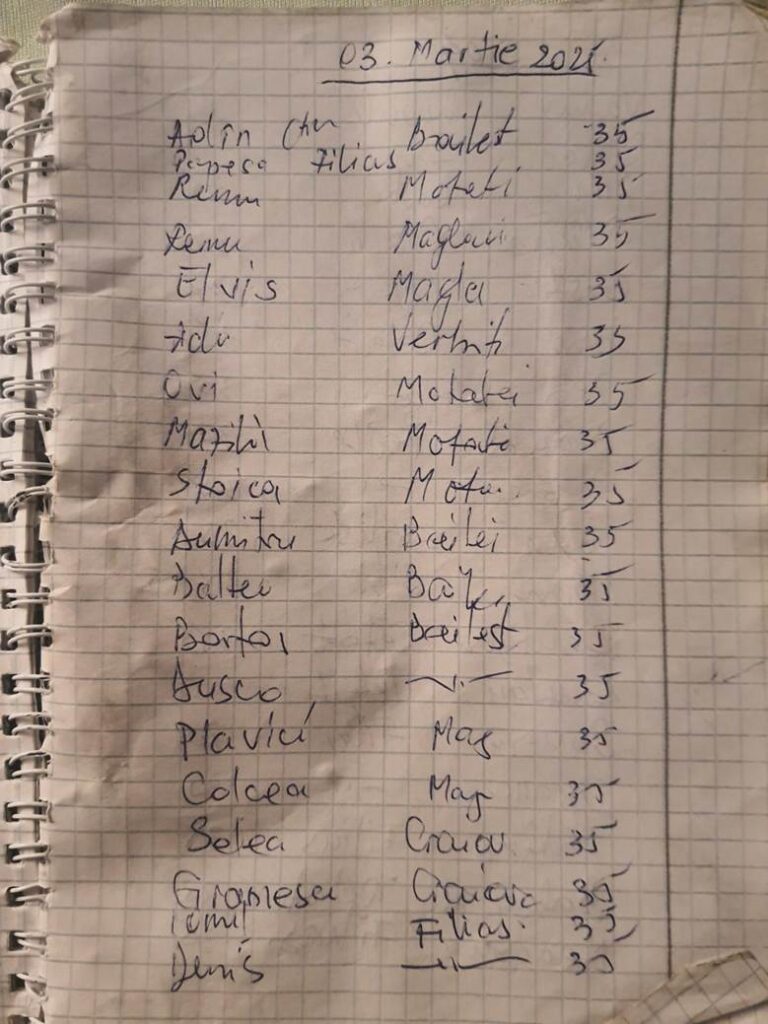 03. Martie 2025
Adin Băilest 35
Popesa Filias 35
Remu Motati 35
Remu Maglavi 35
Elvis Magla 35
Adu Verbiti 35
Ovi Motatei 35
Mazilu Motati 35
Stoica Mota. 35
Dumitru Bailei 35
Baltei Bail 35
Bortoi Bailest 35
Dusco -"- 35
Plavici Mag 35
Colcea Mag 35
Setea Craiov 35
Gramesca Craiova 35
Ionut Filias. 35
Denis -"- 35